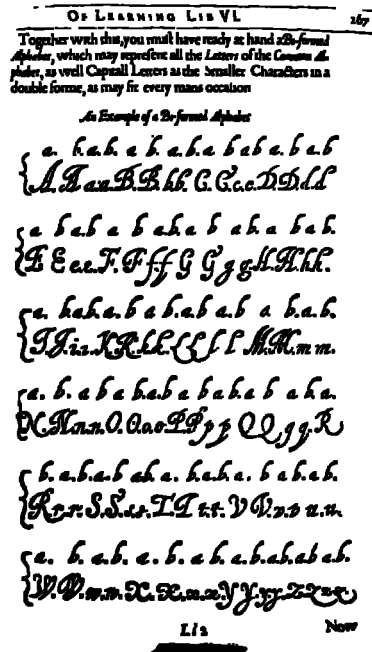 OF LEARNING LIB VI. 267
Together with this, you must have ready at hand a Bi-formed
Alphabet, which may represent all the Letters of the Common Al-
phabet, as well Capitall Letters as the Smaller Characters in a
double forme, as may fit every mans occasion
An Example of a Bi-formed Alphabet
a. b.a.b. a b. a.b.a b a b a. b a.b
A.A a.a.B.B.b.b. C.C.c.c.D.D.d.d
a b a.b a b a.b.a b a b. a b a b.
E E e.e.F.F f.f G G g g.H.H.h.h.
a. b.a.b.a.b a b.a.b a.b a b.a.b.
I.I.i.i.K.K.k.k.L L l l M.M.m m.
a. b. a b a b.a.b a b a b.a b a b.a.
N.N.n.n.O.O.o.o.P.P p p Q Q q q.R
b. a.b.a.b a b.a. b.a.b.a. b a b.a.b.
R.r.r.S.S.s.s.T.T t.t.V V.v.v u.u.
a. b. a.b. a. b. a b. a.b.a.b.a.b a.b.
W.W.w.w.X.X.x.x.Y Y.y.y.Z Z z.z.
Ll 2 Now